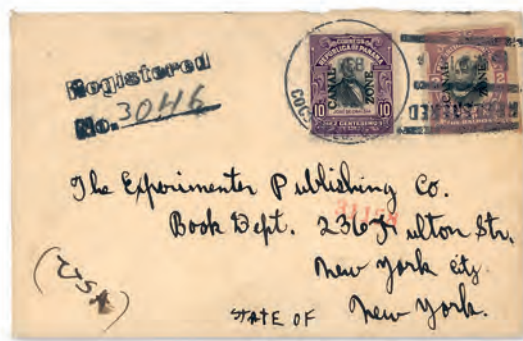 Registered
No. 3046
CORREOS
REPUBLICA DE PANAMA
CANAL ZONE
10 10
CANAL ZONE
The Experimenter Publishing Co.
Book Dept. 236 Fulton Str.
New York City
(USA)
STATE OF New York.